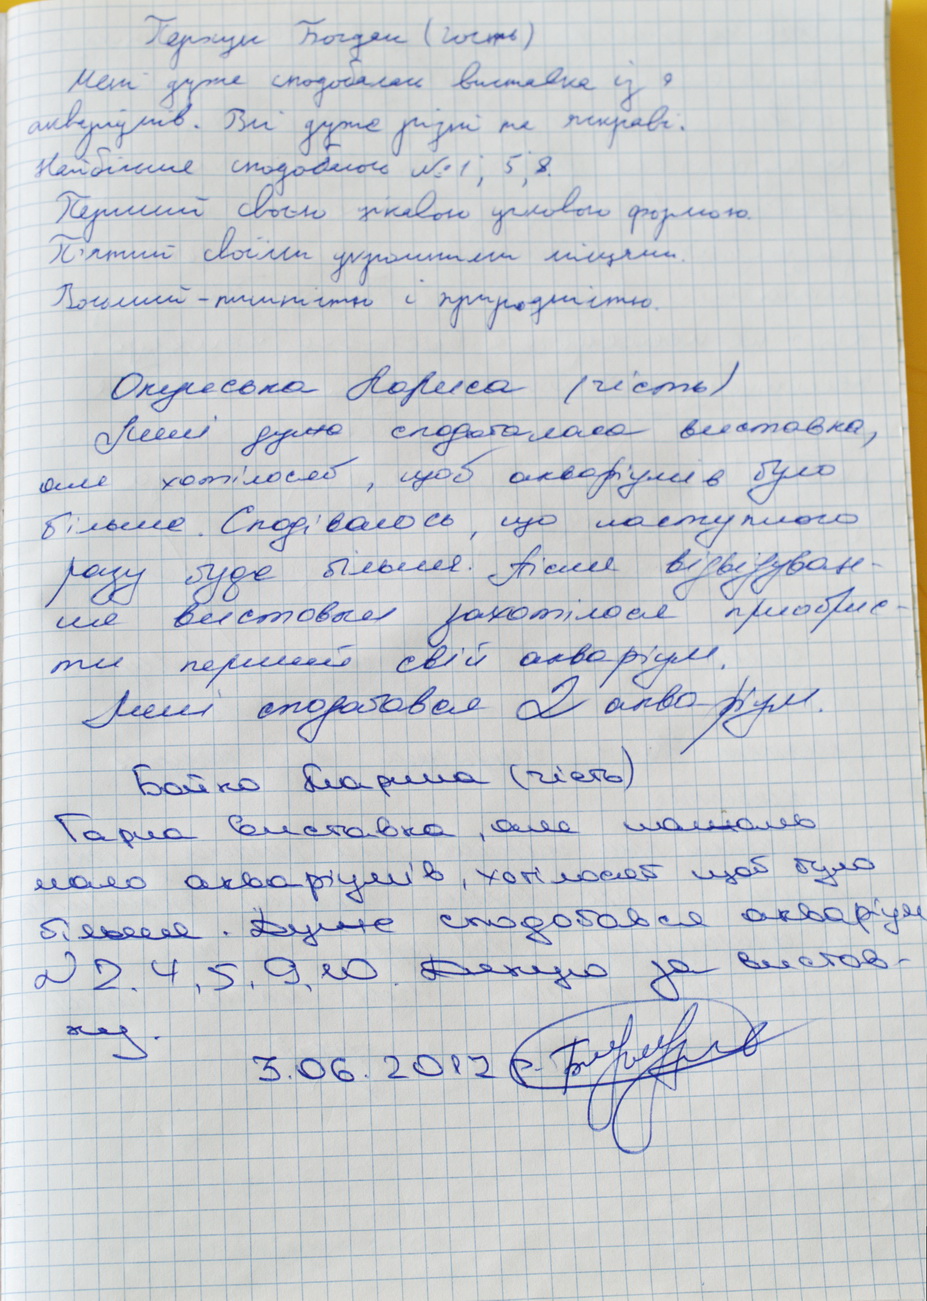 Богдан (гість)
Мені дуже сподобалась виставка із
акваріумів. Всі дуже різні та яскраві.
Найбільше сподобалось №1, 5, 8.
Перший своєю цікавою формою.
П'ятий своїми укромними місцями.
Восьмий - пишністю і природністю.
Лариса (гість)
Мені дуже сподоталася виставка,
але хотілосяб, щоб акваріумів було
більше. Сподіваюсь, що наступного
разу буде більше. Після відвідуван-
ня виставки захотілося приобрес-
ти перший свій акваріум.
Мені сподобався 2 акваріум.
Бойко Марина (гість)
Гарна виставка, але
мало акваріумів, хотілосяб щоб було
більше. Дуже сподобався акваріум
№2, 4, 5, 9, 10. Дякую за вистав-
ку.
3.06.2017 р.